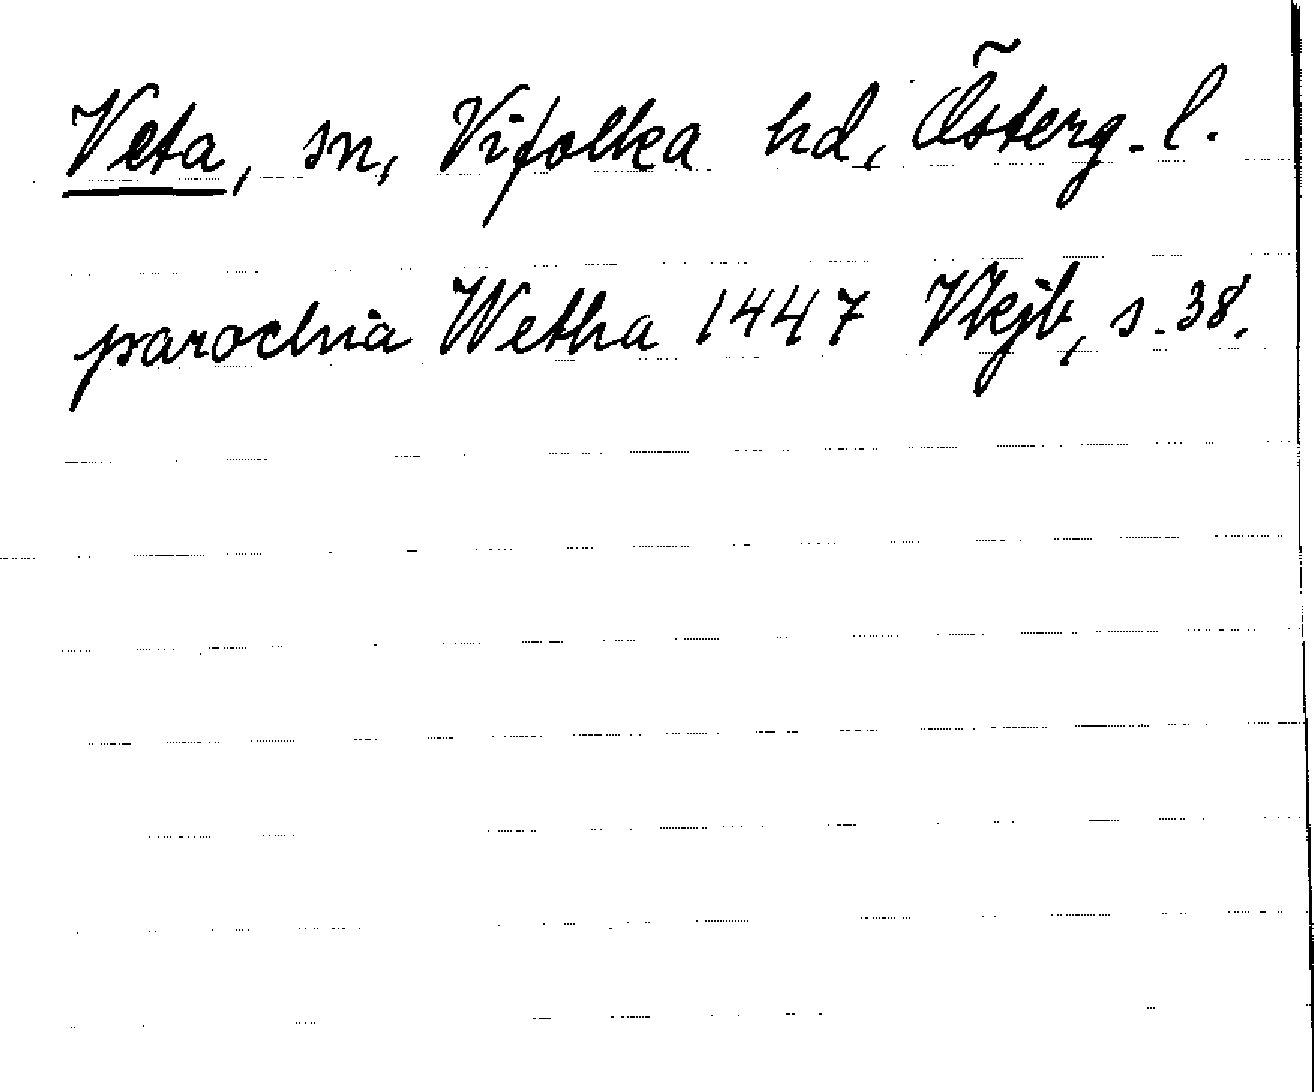 Veta, sn, Vifolka hd, Österg. l.
parochia Wetha 1447 Vkjb, s. 38.